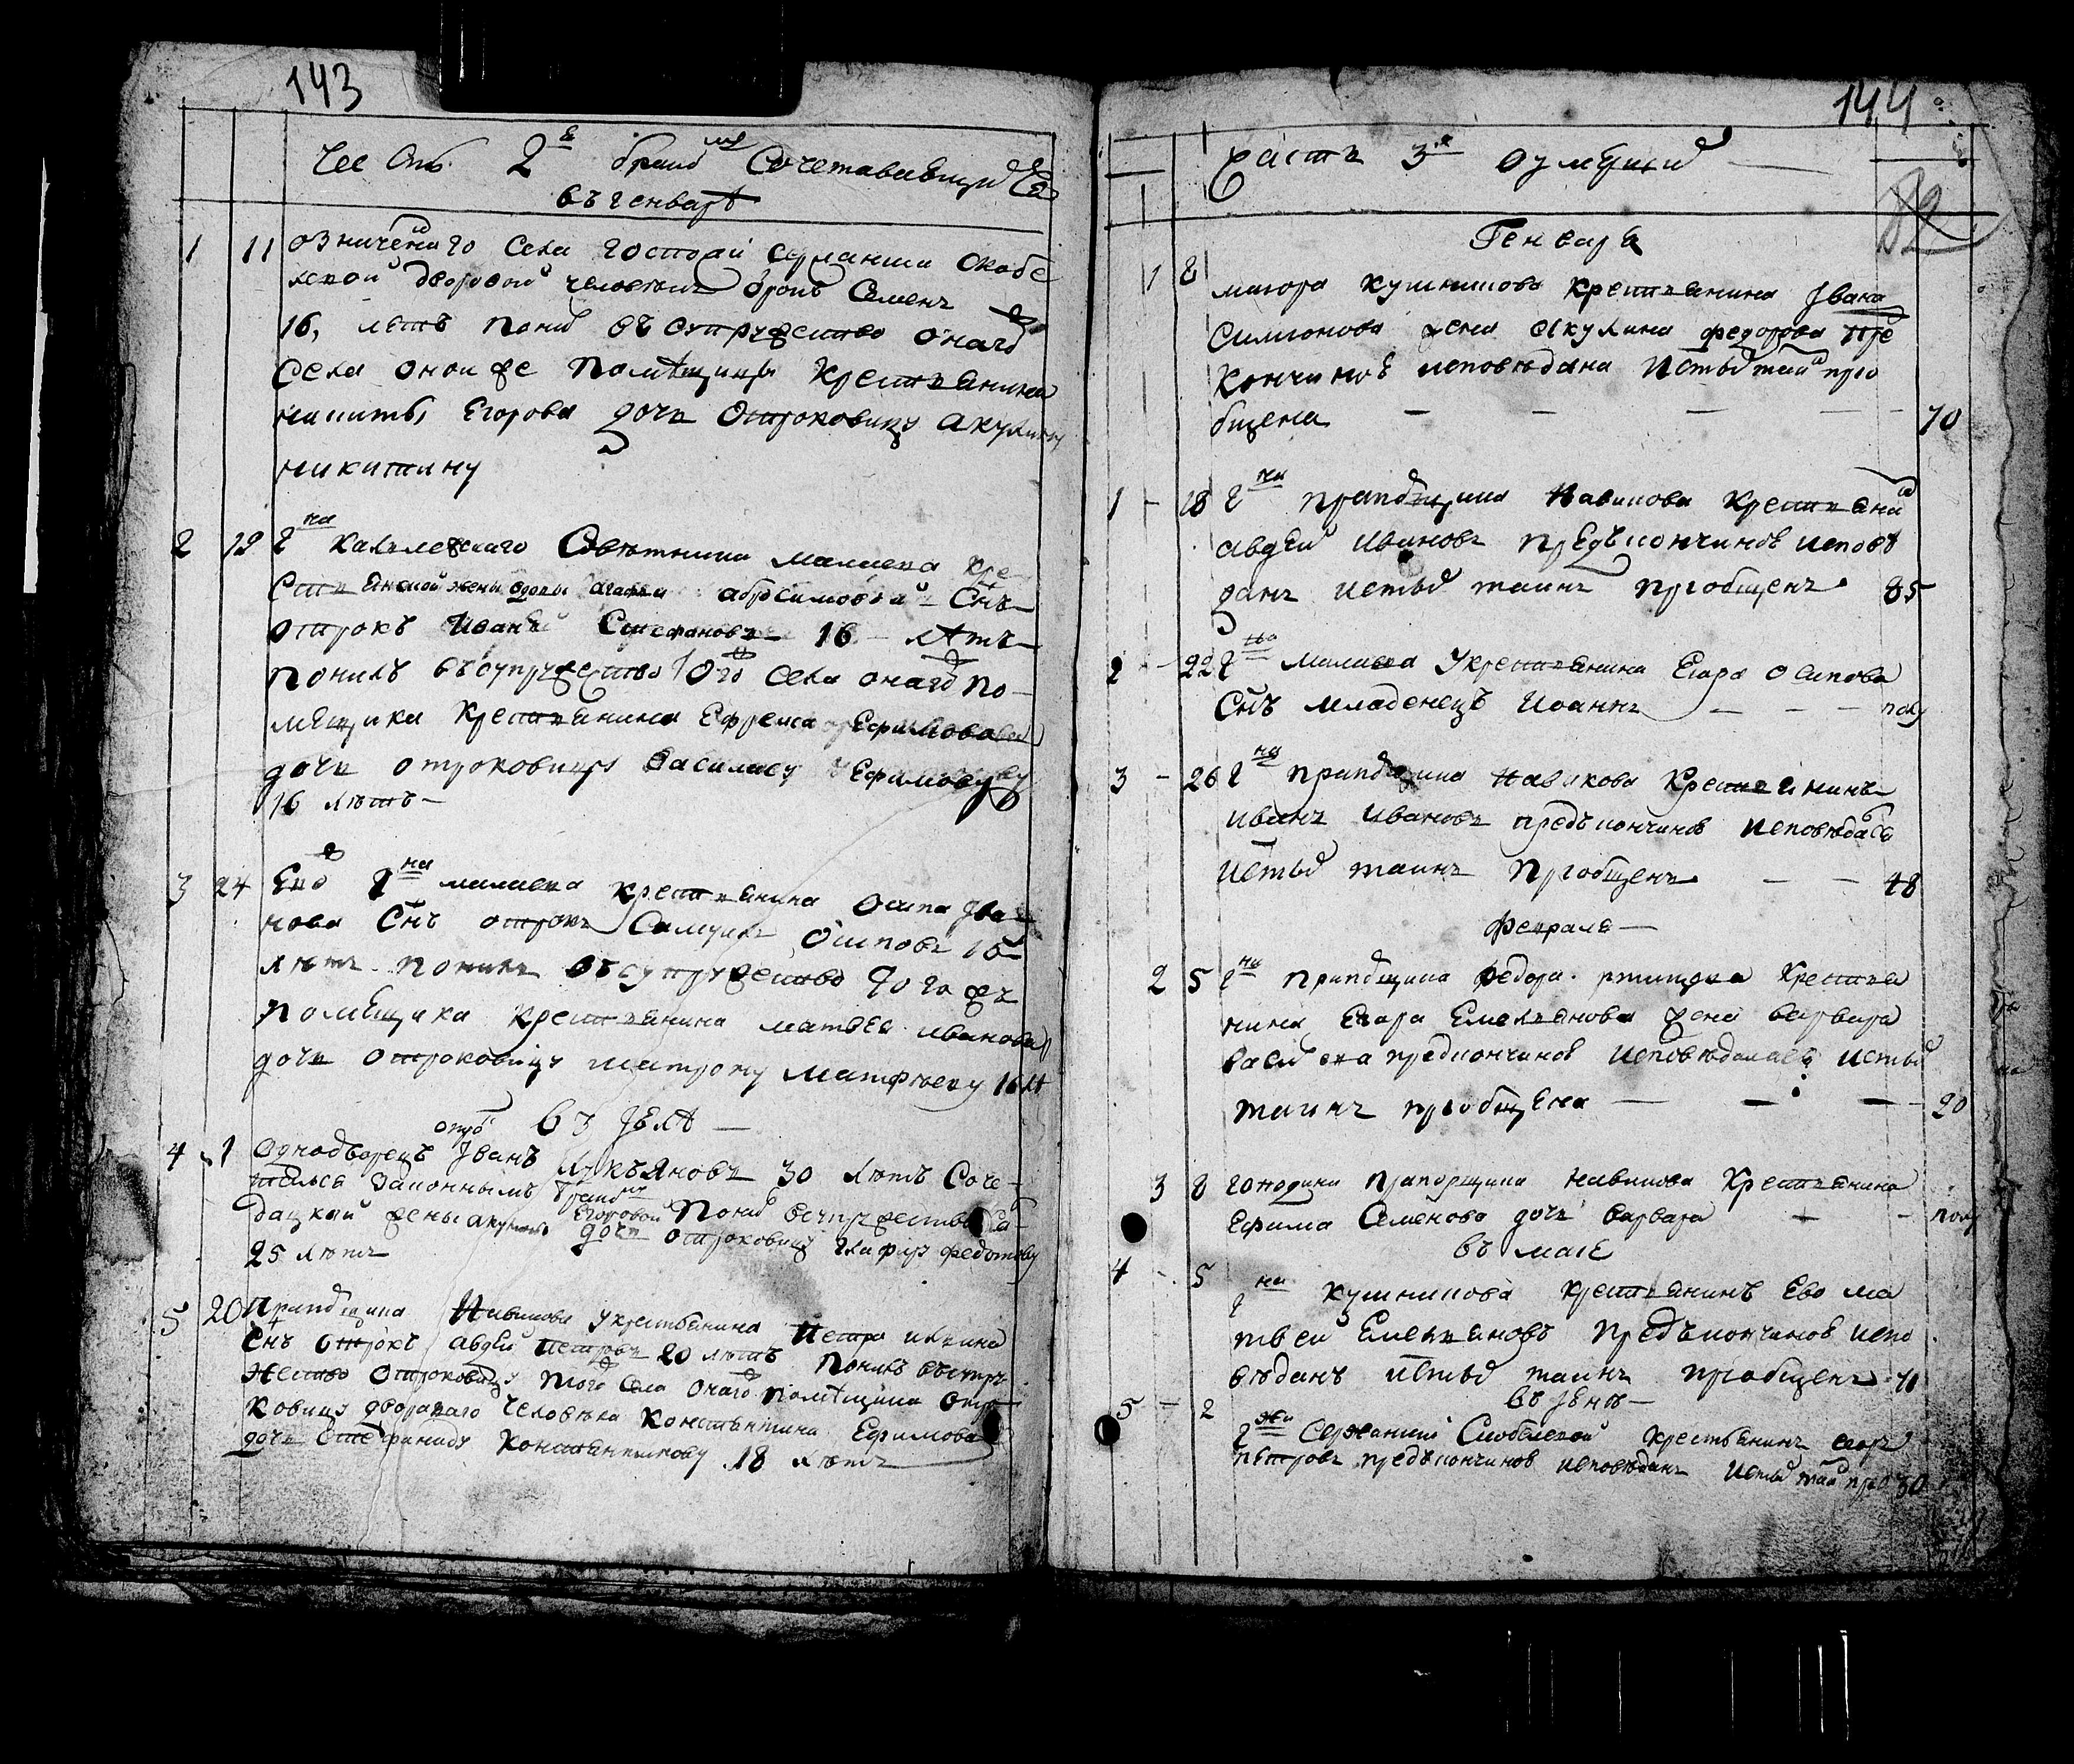 143
Часть 2я бракомъ Сочетавшихся
въ генварѣ
1 11 означеннаго села госпожи сержанши Скобе
левой дворовой человекъ Семенъ
16, летъ понялъ въ супружество онаго
села оной же помѣщицы крестьянина
никиты Егорова дочь отроковицу акулину
никитину
2 19 Гна Колежскаго Советника малиева кре
стьянской жены вдовы агафьи абросимовой Снъ
отрокъ Иванъ Стефановъ 16 лѣтъ
понялъ въсупружество того села онаго по
мещика крестьянина Ефрема Ефимова
дочь отроковицу Василису Ефимову
16 летъ
3 24 Гна малиева крестьянина Осипа Ива
нова Снъ отрокъ Самуилъ Осиповъ 16
летъ понялъ въсупружество тогожъ
помещика крестьянина матвея иванова
дочь отроковицу матрону Матфееву 16 лѣ
въ Іюлѣ
4 1 Однодворецъ Іванъ Лукъяновъ 30 летъ Соче
тался Законнымъ бракомъ понялъ всупружество Сол
дацкой жены акулины Егоровой дочь отроковицу Глафиру федотову
25 летъ
5 20 Прапорщика Навикова укрестьянина Петра
Снъ отрокъ авдей петровъ 20 летъ понялъ въсупру
жество отроковицу того села онаго помѣщика отро
ковицу двороваго человека Константина Ефимова
дочь Стефаниду Константинову 18 летъ
144
Часть 3я о умерших
Генваря
1 8 маиора кушникова крестьянина Івана
Симионова жена акулина федорова пре
кончиной исповедана Истыхъ таинъ прио
бщена 70
1 18 Гна прапорщика Навикова крестьянинъ
авдей Ивановъ предъкончиной исповѣ
данъ истых таинъ приобщенъ 85
2 22 Гна малиева укрестьянина Егора Осипова
Снъ младенецъ Иоаннъ полу
3 26 Гна прапорщика Навикова Крестьянинъ
иванъ Ивановъ предъкончиной исповедася
истых таинъ приобщенъ 48
февраля
2 5 Гна прапорщика федора ртищева крестья
нина Егора Емельянова жена варвара
предкончиной исповѣдалась истых
таинъ приобщена 90
3 8 господина прапорщика навикова крестьянина
Ефима Семенова дочь варвара полу
въ маіе
4 5 Гна кушникова крестьянинъ Ево ма
твей Емельяновъ предъкончиной испо
ведан истых таинъ приобщенъ 71
въ Іюне
5 2 Гжи Сержанши Скобелевой крестьянинъ егоръ
петровъ предъкончиной исповѣданъ истых таин прио 30